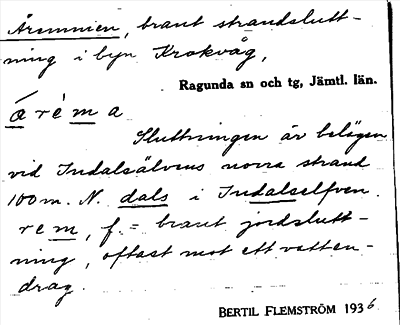 Åremmen, brant strandslutt-
ning i byn Krokvåg,
Ragunda sn och tg, Jämtl. län.
á r è m a
Sluttningen är belägen
vid Indalsälvens norra strand
100 m. N. dals i Indalselfven.
rem, f. = brant jordslutt-
ning, oftast mot ett vatten-
drag.
BERTIL FLEMSTRÖM 1936